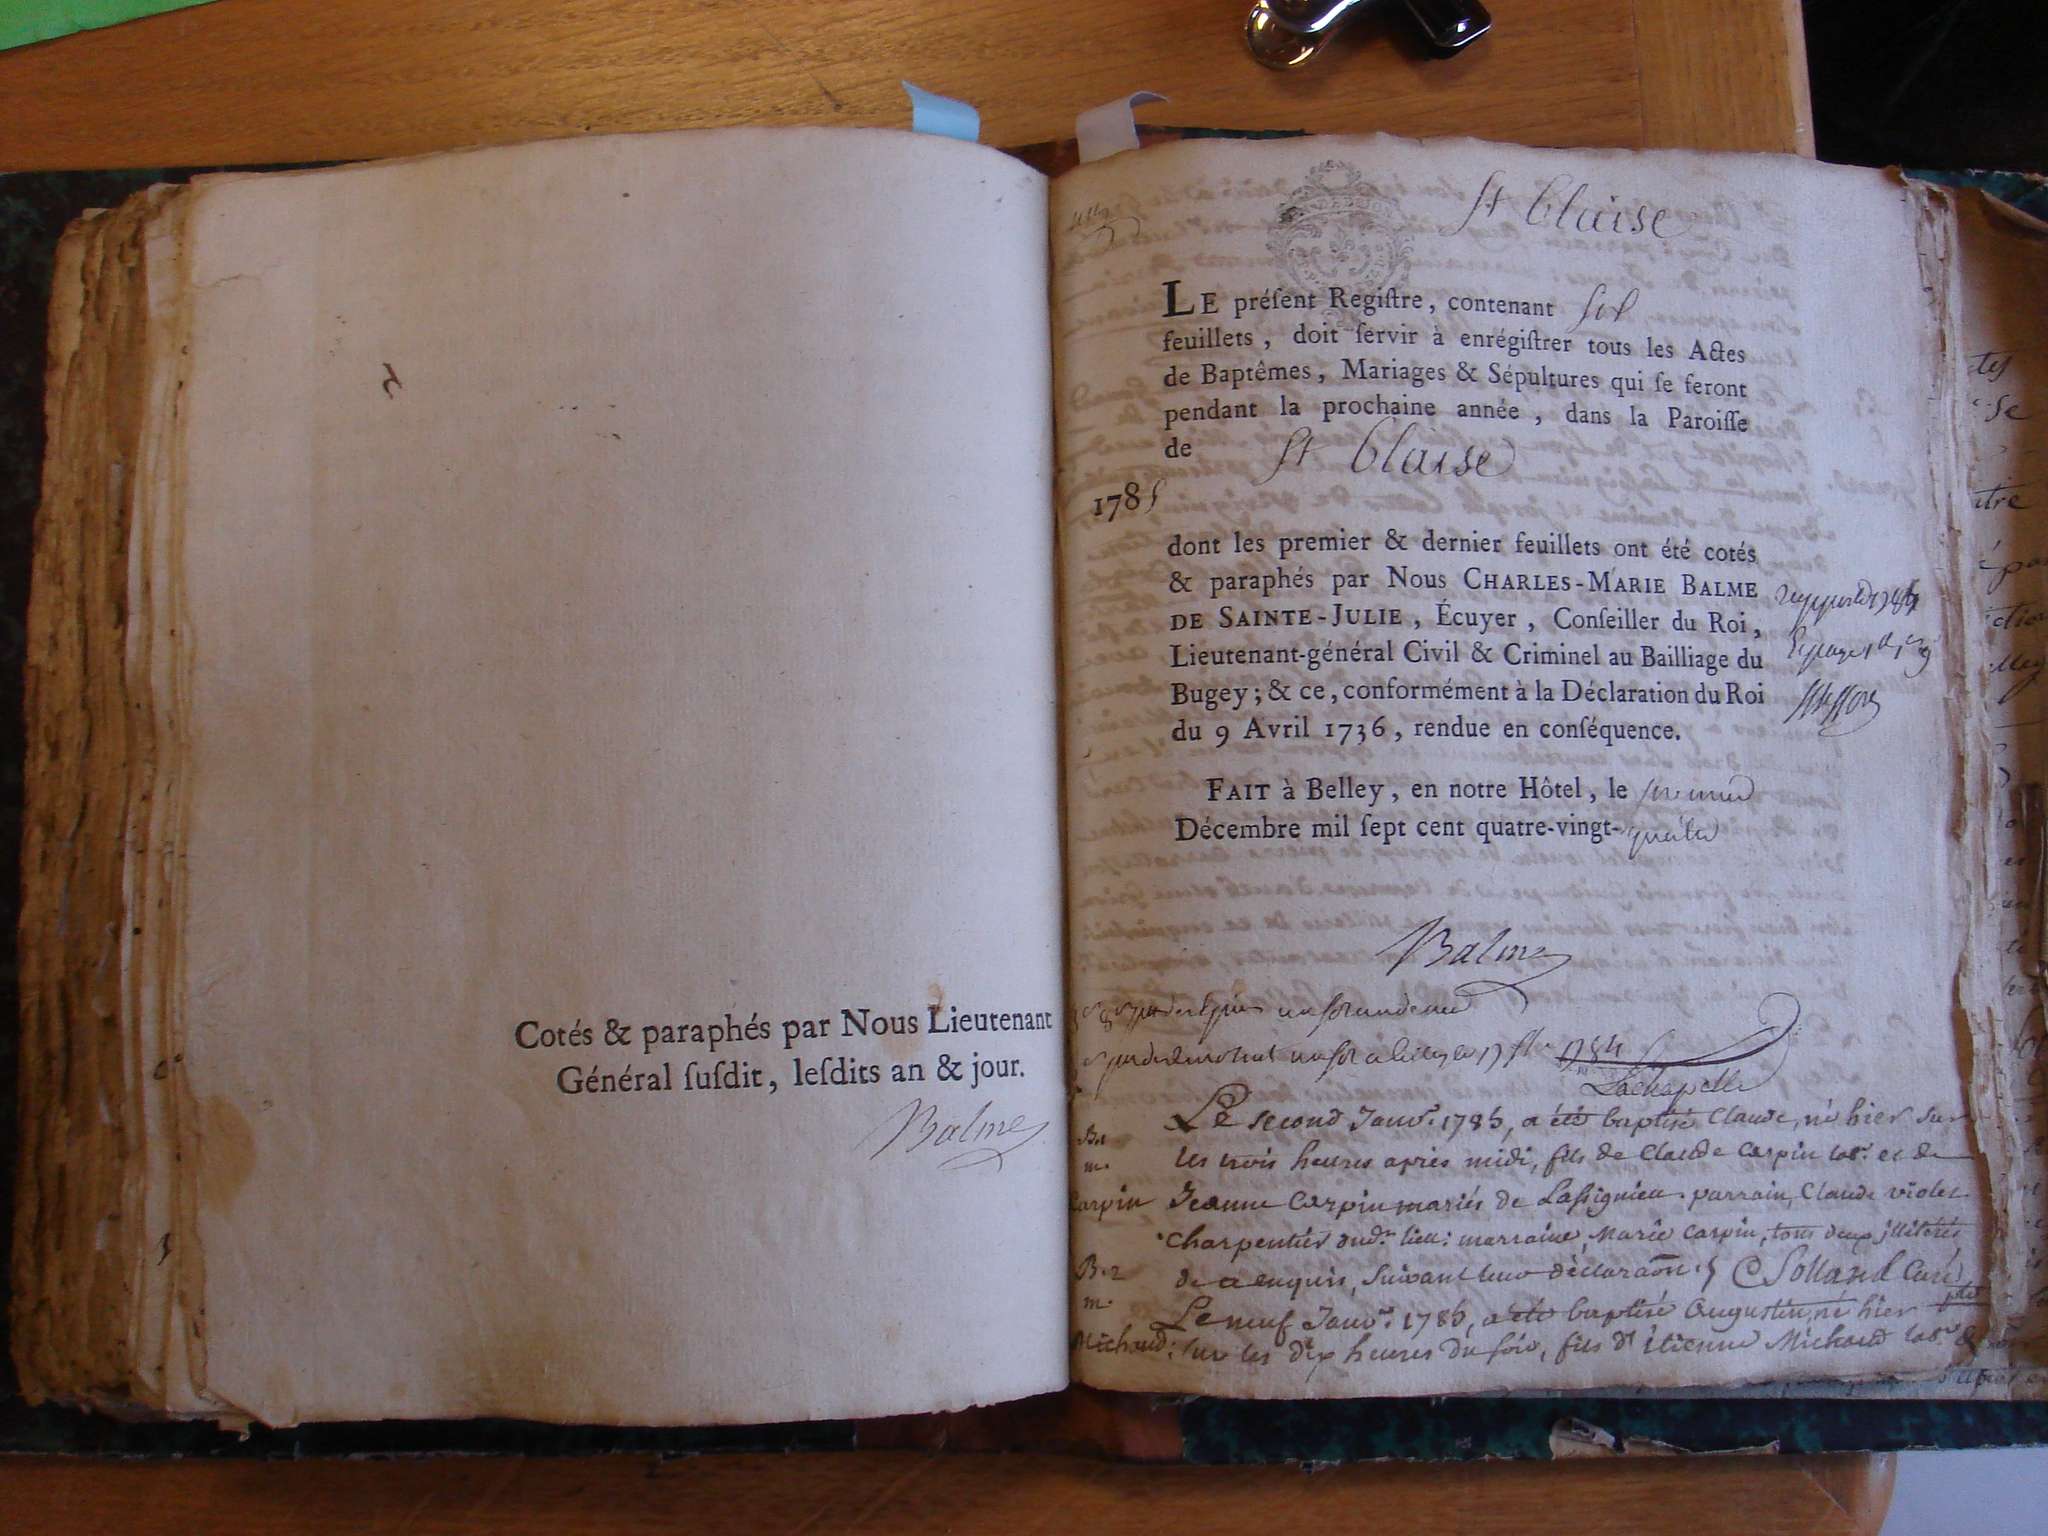 Cotés & paraphés par Nous Lieutenant
Général ſuſdit, leſdits an & jour.
Balme
St Blaise
LE préſent Regiſtre, contenant six
feuillets, doit ſervir à enrégiſtrer tous les Actes
de Baptêmes, Mariages & Sépultures qui ſe feront
pendant la prochaine année, dans la Paroiſſe
de St Blaise
1785
dont les premier & dernier feuillets ont été cotés
& paraphés par Nous CHARLES-MARIE BALME
DE SAINTE-JULIE, Écuyer, Conſeiller du Roi,
Lieutenant-général Civil & Criminel au Bailliage du
Bugey; & ce, conformément à la Déclaration du Roi
du 9 Avril 1736, rendue en conſéquence.
FAIT à Belley, en notre Hôtel, le premier
Décembre mil ſept cent quatre-vingt-quatre
Balme
1784
Lachapelle
Le second Janv.r 1785, a été baptisé Claude, né hier sur
les trois heures après midi, fils de Claude Carpin lab.r et de
Jeanne Carpin mariés de Lassignieu. parrain, Claude violet
charpentier dud.t lieu: marraine, Marie Carpin, tous deux illiterés
de ce enquis, suivant leur déclaraõn. Solland Curé
Le neuf Janv.r 1785, a été baptisé Augustin, né hier
sur les dix heures du soir, fils d'étienne Michaud lab.r &
B. 1
m.
Carpin
B. 2
m.
Michaud